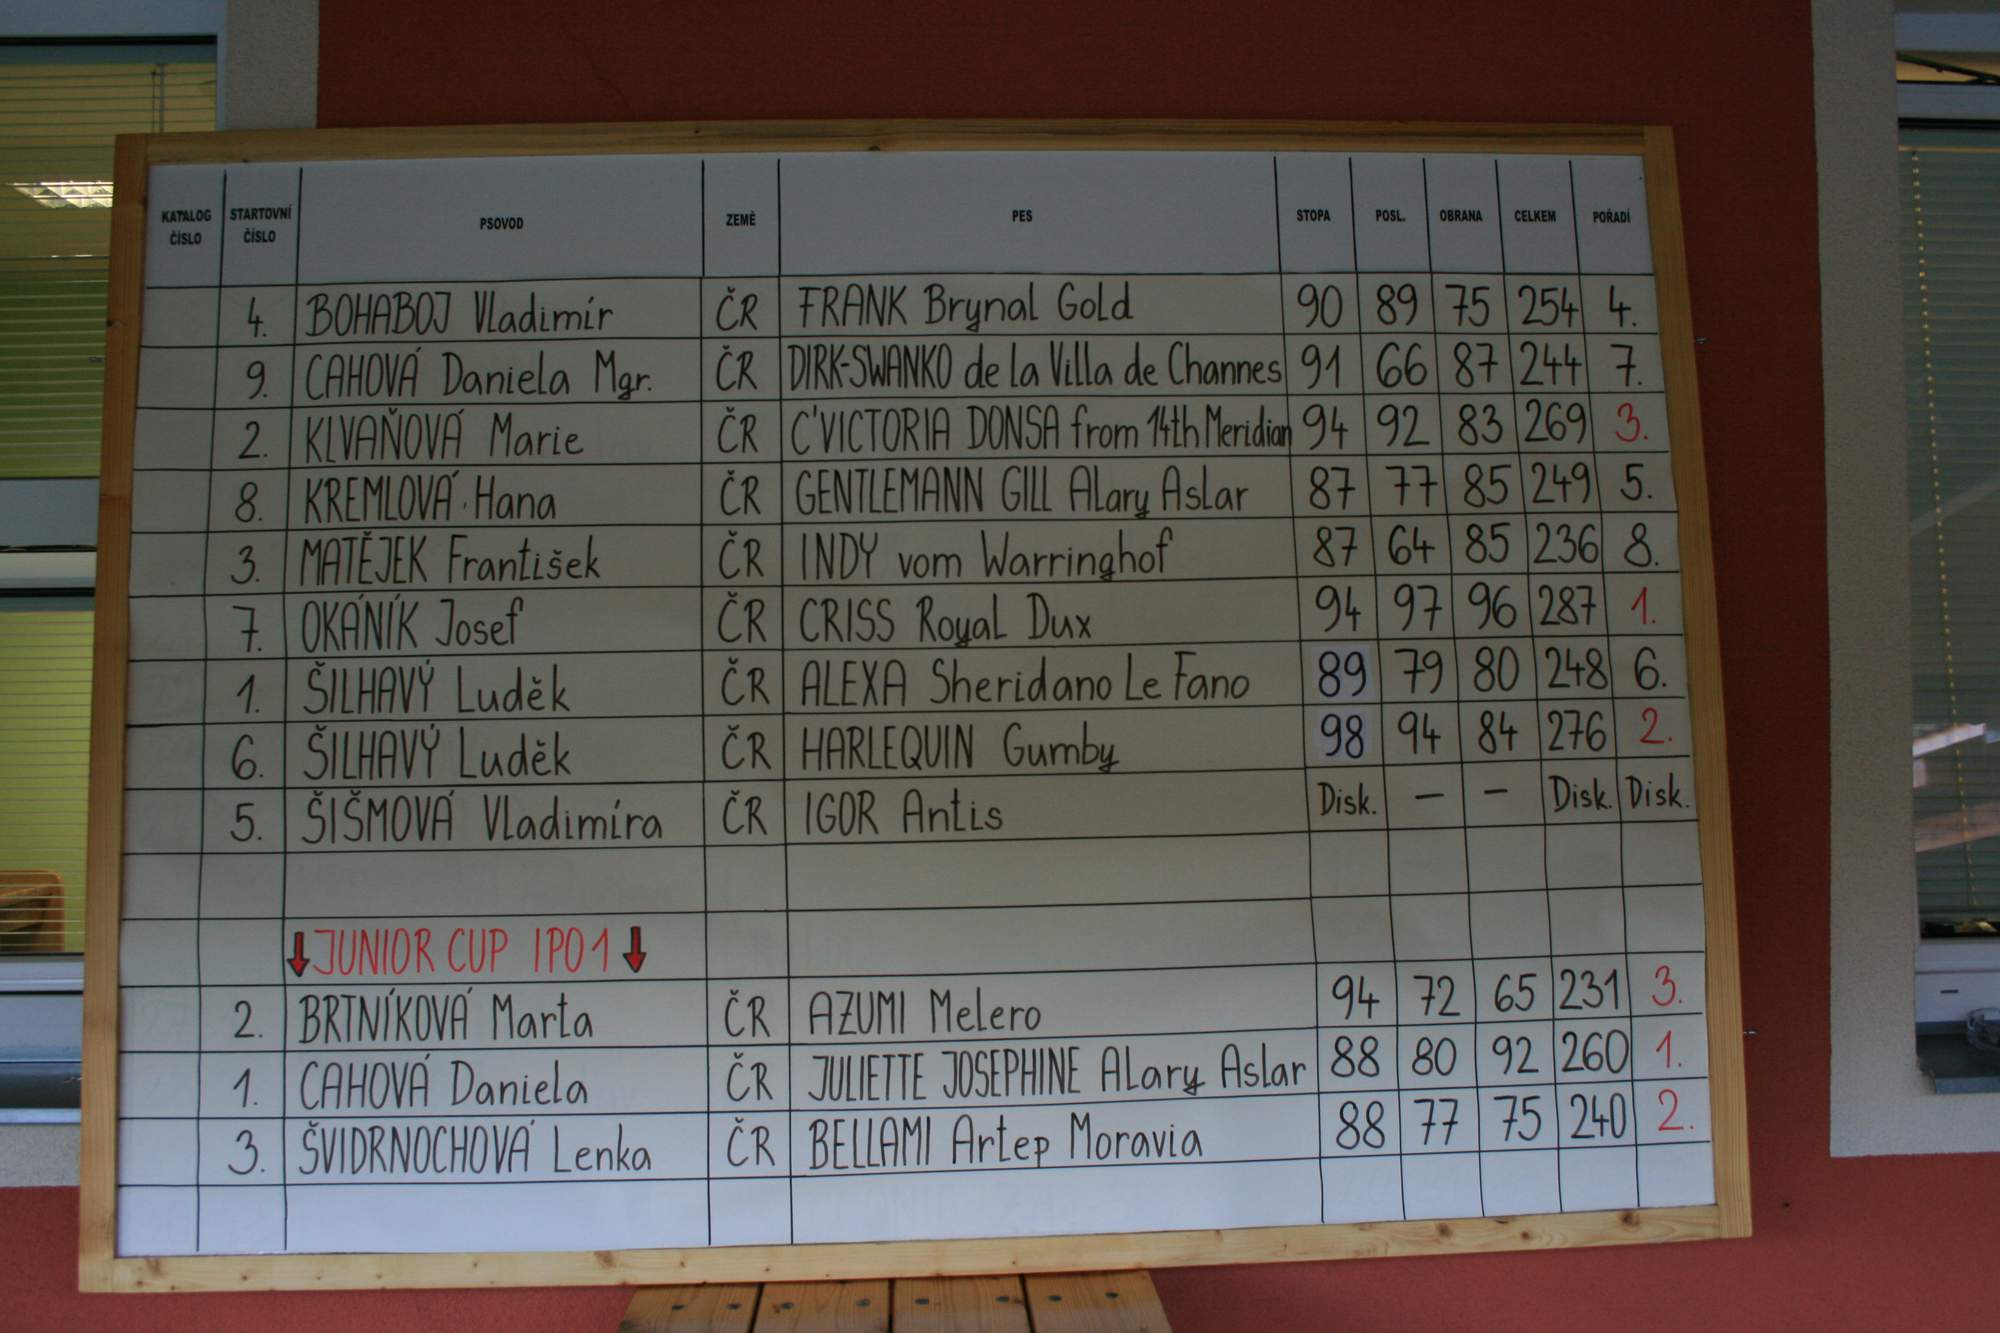 KATALOG ČÍSLO STARTOVNÍ ČÍSLO PSOVOD ZEMĚ PES STOPA POSL. OBRANA CELKEM POŘADÍ
4. BOHABOJ Vladimír ČR FRANK Brynal Gold 90 89 75 254 4.
9. CAHOVÁ Daniela Mgr. ČR DIRK-SWANKO de la Villa de Channes 91 66 87 244 7.
2. KLVAŇOVÁ Marie ČR C'VICTORIA DONSA from 14th Meridian 94 92 83 269 3.
8. KREMLOVÁ Hana ČR GENTLEMANN GILL Alary Aslar 87 77 85 249 5.
3. MATĚJEK František ČR INDY vom Warringhof 87 64 85 236 8.
7. OKÁNÍK Josef ČR CRISS Royal Dux 94 97 96 287 1.
1. ŠILHAVÝ Luděk ČR ALEXA Sheridano Le Fano 89 79 80 248 6.
6. ŠILHAVÝ Luděk ČR HARLEQUIN Gumby 98 94 84 276 2.
5. ŠIŠMOVÁ Vladimíra ČR IGOR Antis Disk. — — Disk. Disk.
↓ JUNIOR CUP IPO1 ↓
2. BRTNÍKOVÁ Marta ČR AZUMI Melero 94 72 65 231 3.
1. CAHOVÁ Daniela ČR JULIETTE JOSEPHINE Alary Aslar 88 80 92 260 1.
3. ŠVIDRNOCHOVÁ Lenka ČR BELLAMI Artep Moravia 88 77 75 240 2.